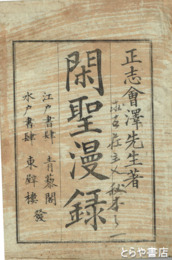 正志會澤先生著
閑聖漫録
江戸書肆 青藜閣
水戸書肆 東壁樓 發
とらや書店